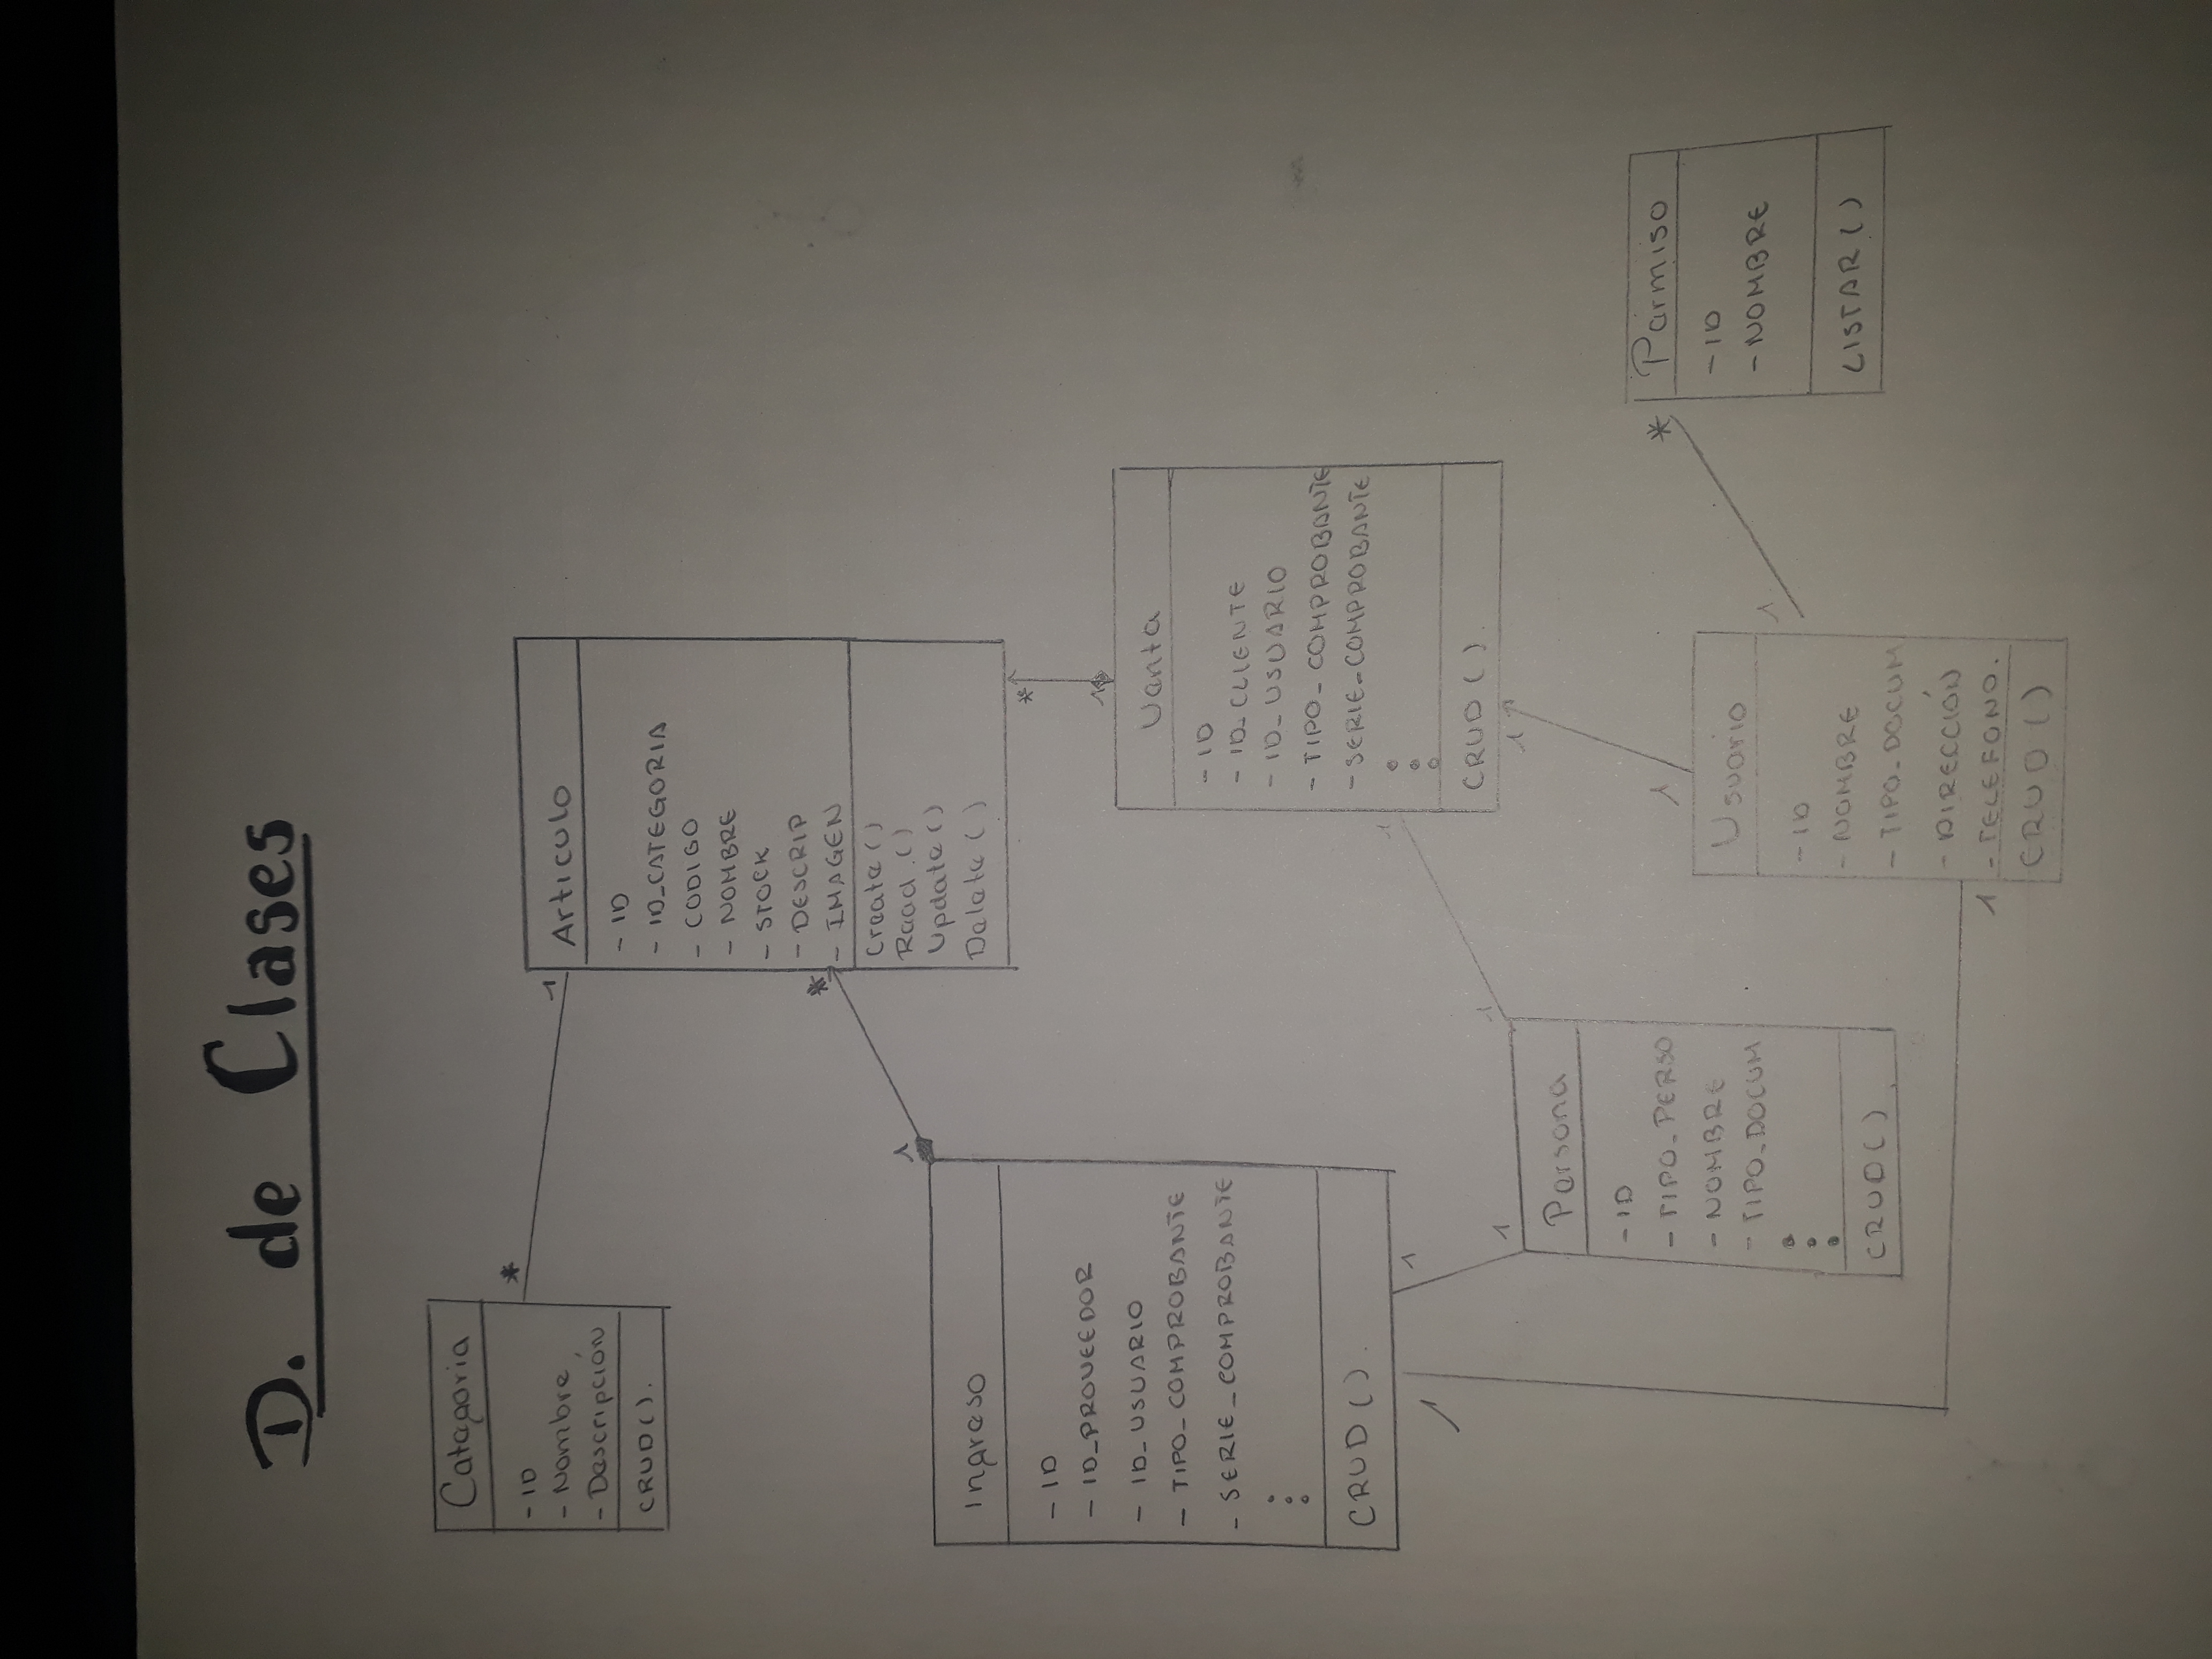 D. de Clases
Categoria
- ID
- Nombre
- Descripción
CRUD().
*
1
Articulo
- ID
- ID_CATEGORIA
- CODIGO
- NOMBRE
- STOCK
- DESCRIP
- IMAGEN
Create()
Read()
Update()
Delete()
*
1
Ingreso
- ID
- ID_PROVEEDOR
- ID_USUARIO
- TIPO_COMPROBANTE
- SERIE_COMPROBANTE
CRUD().
*
1
Venta
- ID
- ID_CLIENTE
- ID_USUARIO
- TIPO_COMPROBANTE
- SERIE_COMPROBANTE
CRUD().
1
1
1
1
1
Persona
- ID
- TIPO_PERSO
- NOMBRE
- TIPO_DOCUM
CRUD()
1
1
Usuario
- ID
- NOMBRE
- TIPO_DOCUM
- DIRECCIÓN
- TELEFONO.
CRUD()
1
1
*
Permiso
- ID
- NOMBRE
LISTAR()